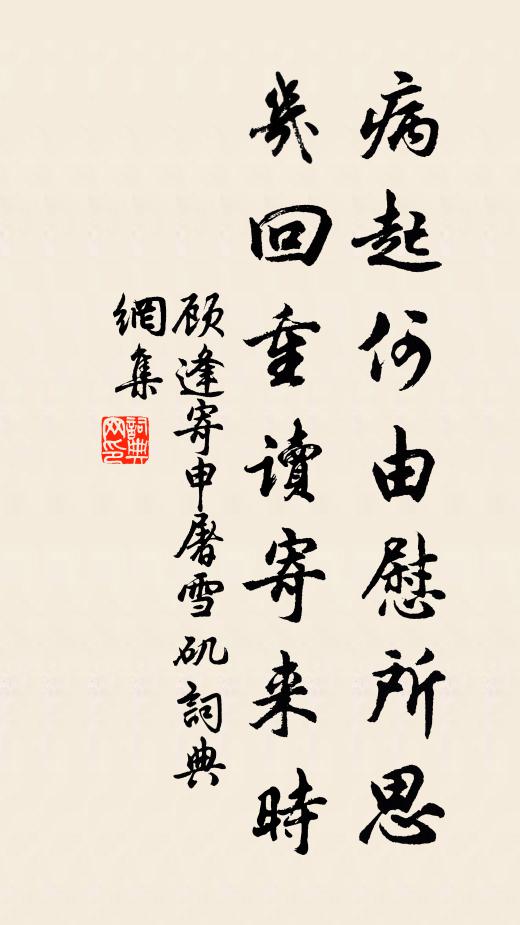 病起何由慰所思
幾回重讀寄来時
顾逢寄申屠雪矶 詞典
網集
詞典
网印